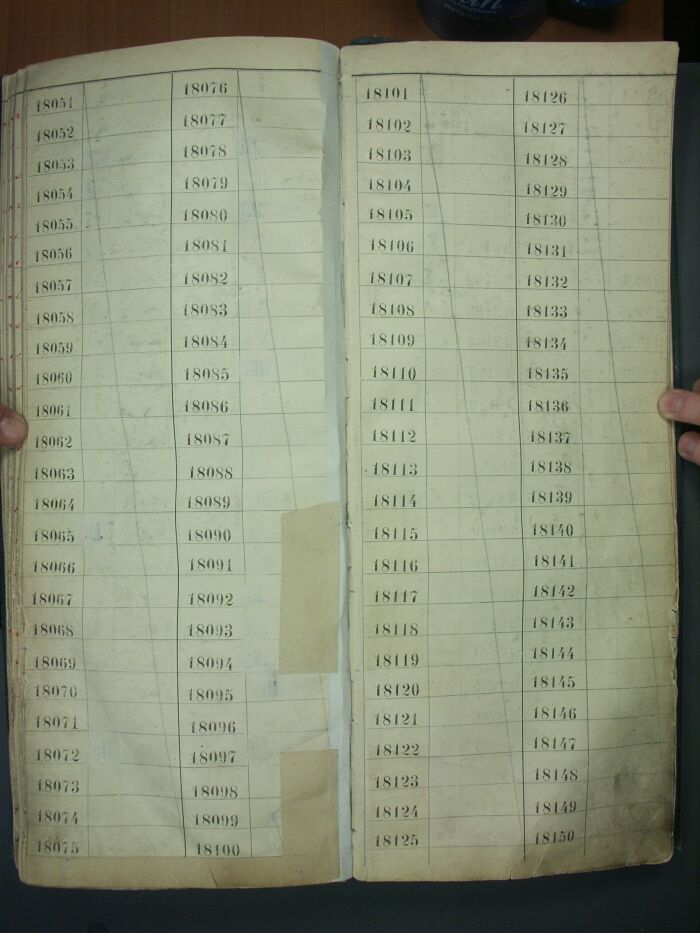 18051
18052
18053
18054
18055
18056
18057
18058
18059
18060
18061
18062
18063
18064
18065
18066
18067
18068
18069
18070
18071
18072
18073
18074
18075
18076
18077
18078
18079
18080
18081
18082
18083
18084
18085
18086
18087
18088
18089
18090
18091
18092
18093
18094
18095
18096
18097
18098
18099
18100
18101
18102
18103
18104
18105
18106
18107
18108
18109
18110
18111
18112
18113
18114
18115
18116
18117
18118
18119
18120
18121
18122
18123
18124
18125
18126
18127
18128
18129
18130
18131
18132
18133
18134
18135
18136
18137
18138
18139
18140
18141
18142
18143
18144
18145
18146
18147
18148
18149
18150